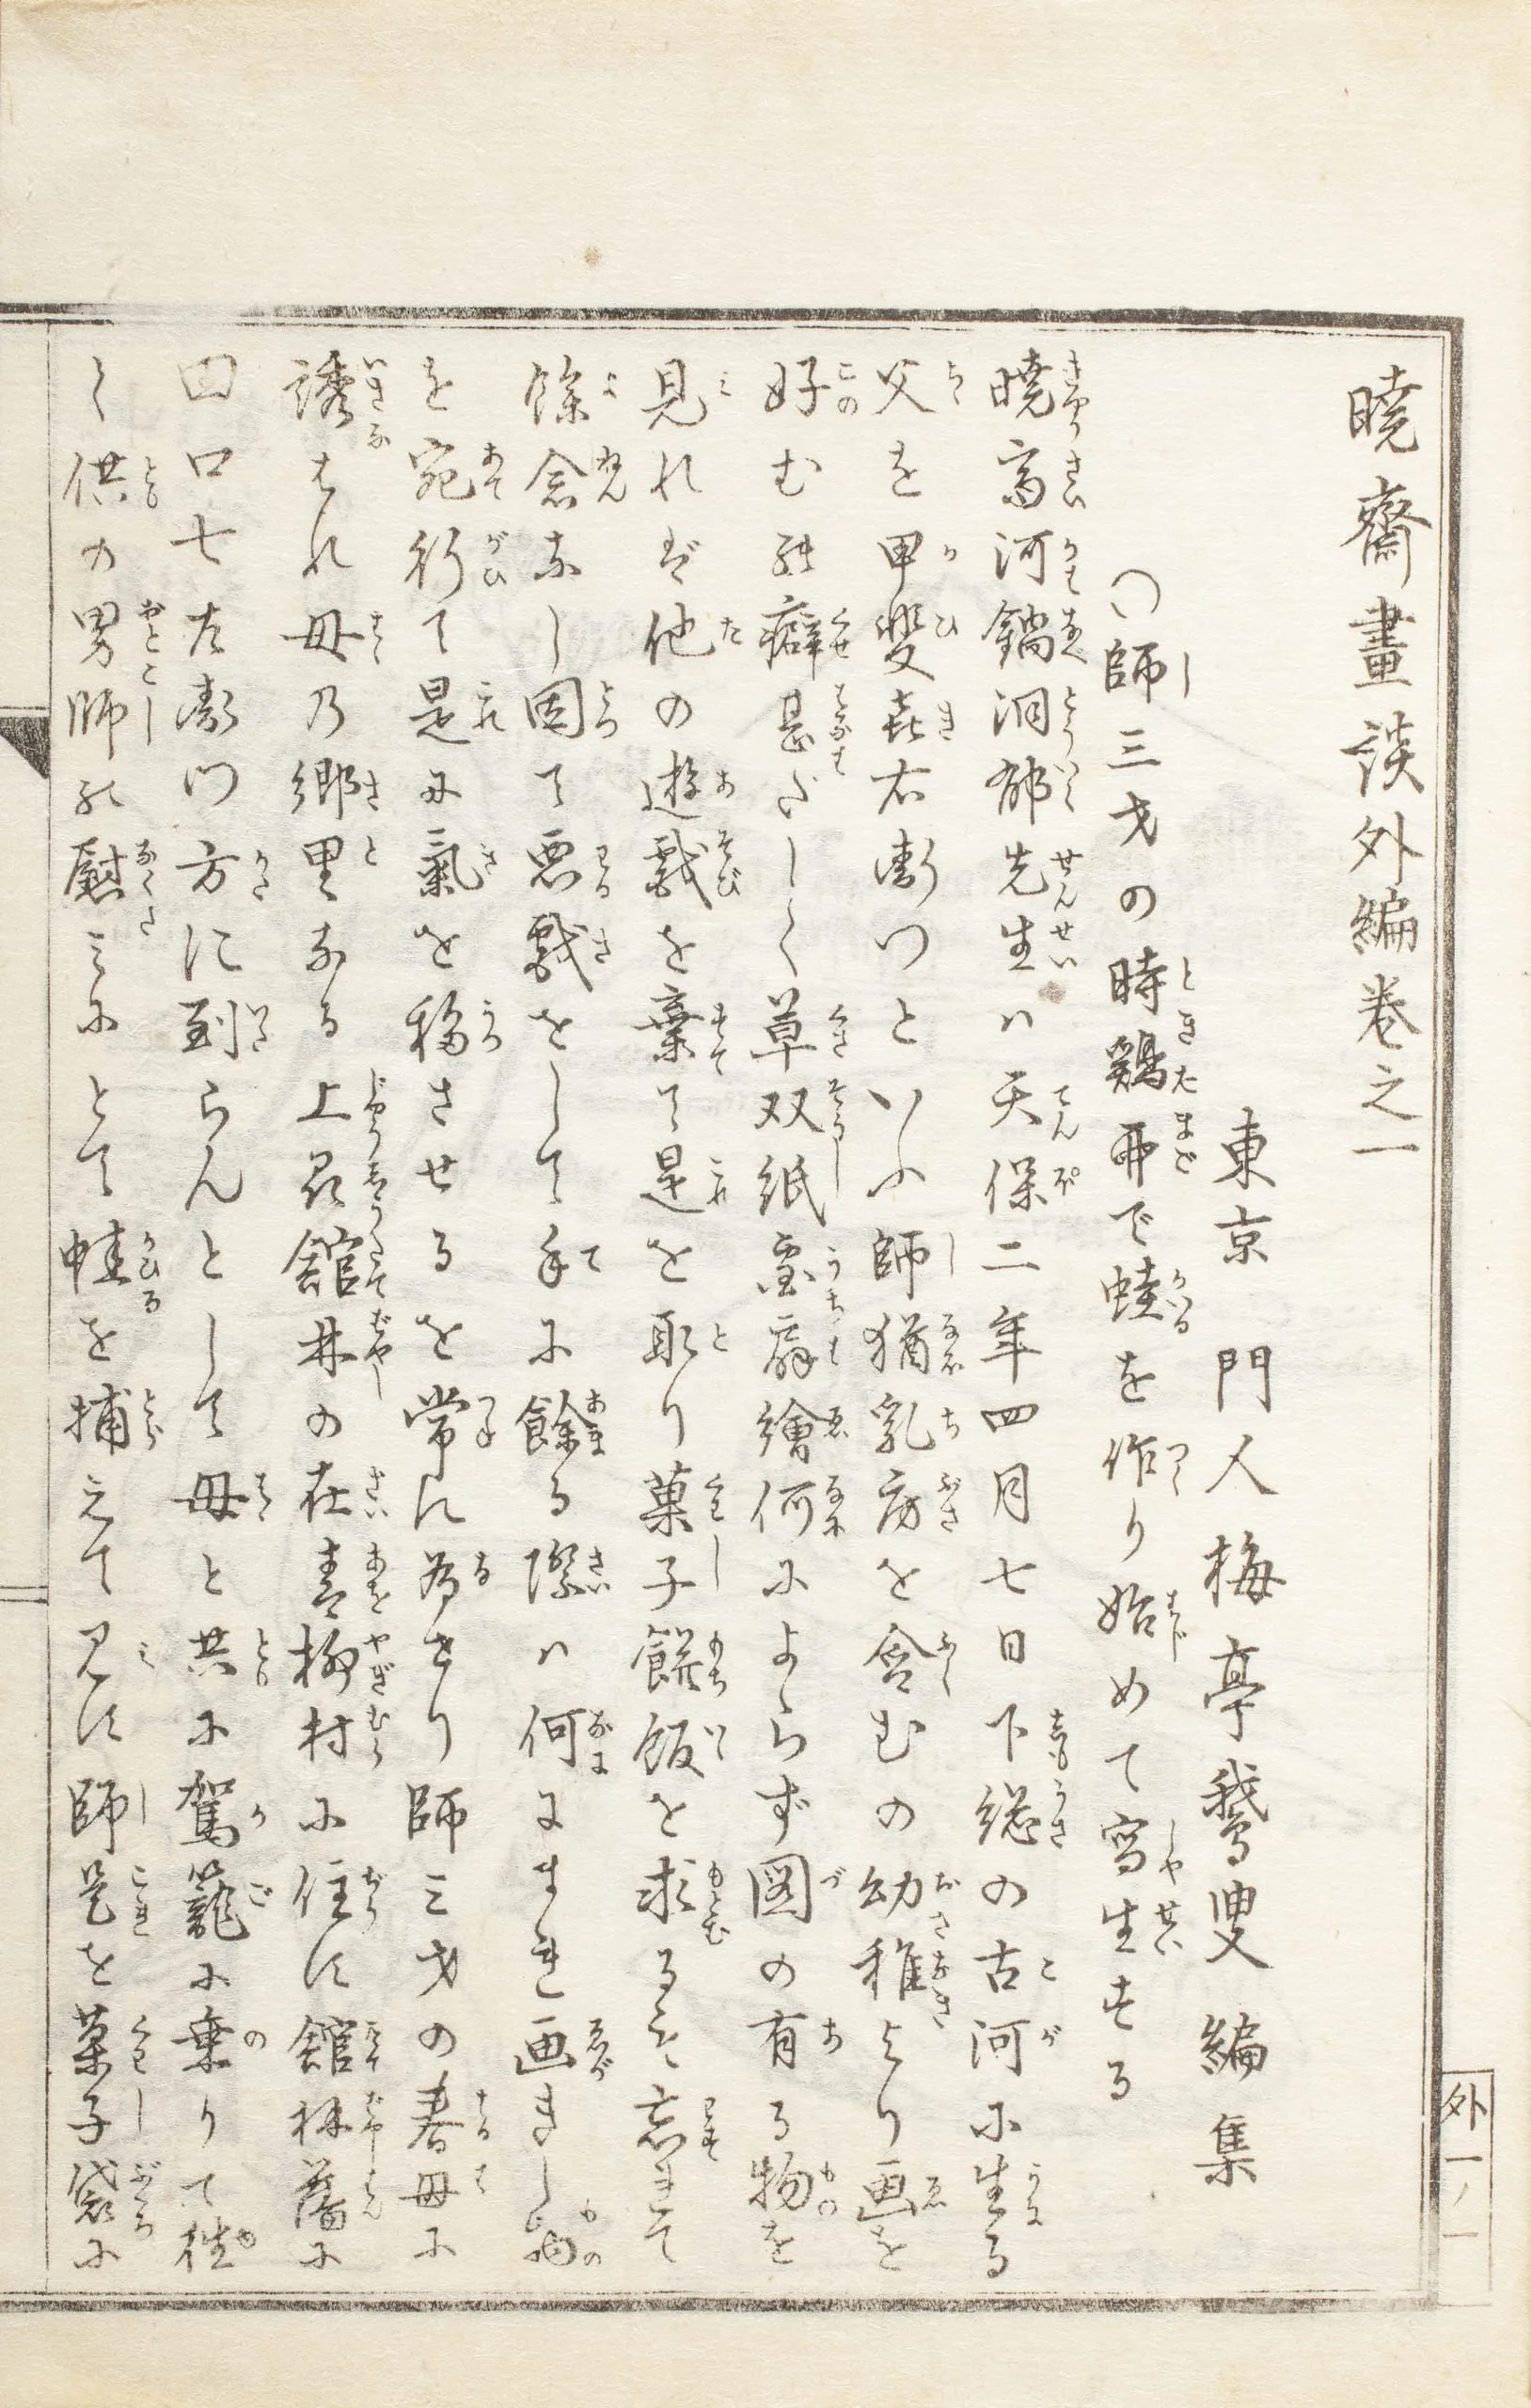 暁齋畫談外編卷之一
東京 門人 梅亭鵞叟 編集
〇師三才の時鶏卵で蛙を作り始めて寫生する
暁斎河鍋洞郁先生ハ天保二年四月七日下総の古河に生る
父を甲斐喜右衛門といふ師猶乳房を含むの幼稚より画を
好むの癖甚だしく草双紙団扇繪何によらず図の有る物を
見れば他の遊戯を棄て是を取り菓子餅飯を求るを忘れて
餘念なし固て悪戯をして手に餘る際ハ何にまれ画きし物
を宛行て是に氣を移させるを常に為せり師三才の春母に
誘はれ母の郷里なる上州舘林の在青柳村に住す舘林藩に
田口七左衛門方に到らんとして母と共に駕籠に乗りて徃
く供の男師の慰みにとて蛙を捕えて見す師是を菓子袋に
外一ノ一